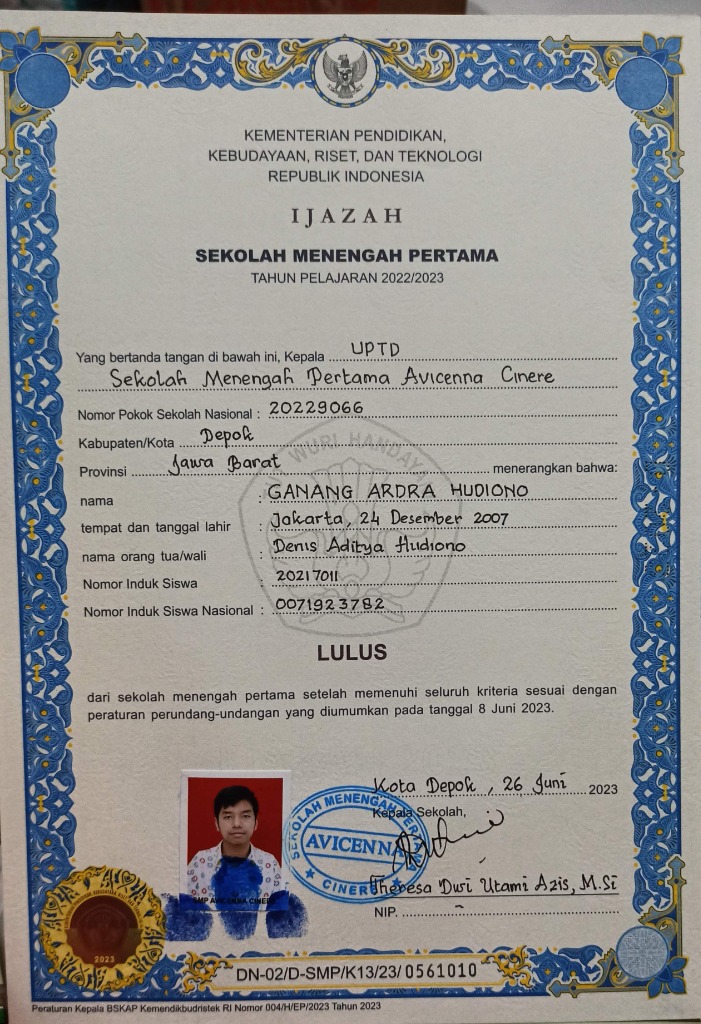 KEMENTERIAN PENDIDIKAN,
KEBUDAYAAN, RISET, DAN TEKNOLOGI
REPUBLIK INDONESIA
IJAZAH
SEKOLAH MENENGAH PERTAMA
TAHUN PELAJARAN 2022/2023
Yang bertanda tangan di bawah ini, Kepala UPTD
Sekolah Menengah Pertama Avicenna Cinere
Nomor Pokok Sekolah Nasional : 20229066
Kabupaten/Kota Depok
Provinsi Jawa Barat menerangkan bahwa:
nama : GANANG ARDRA HUDIONO
tempat dan tanggal lahir : Jakarta, 24 Desember 2007
nama orang tua/wali : Denis Aditya Hudiono
Nomor Induk Siswa : 20217011
Nomor Induk Siswa Nasional : 0071923782
WURI HANDAYANI
LULUS
dari sekolah menengah pertama setelah memenuhi seluruh kriteria sesuai dengan
peraturan perundang-undangan yang diumumkan pada tanggal 8 Juni 2023.
Kota Depok, 26 Juni 2023
Kepala Sekolah,
SEKOLAH MENENGAH PERTAMA
AVICENNA
CINERE
SMP AVICENNA CINERE
Theresa Dwi Utami Azis, M.Si
NIP. -
2023
DN-02/D-SMP/K13/23/0561010
Peraturan Kepala BSKAP Kemendikbudristek RI Nomor 004/H/EP/2023 Tahun 2023